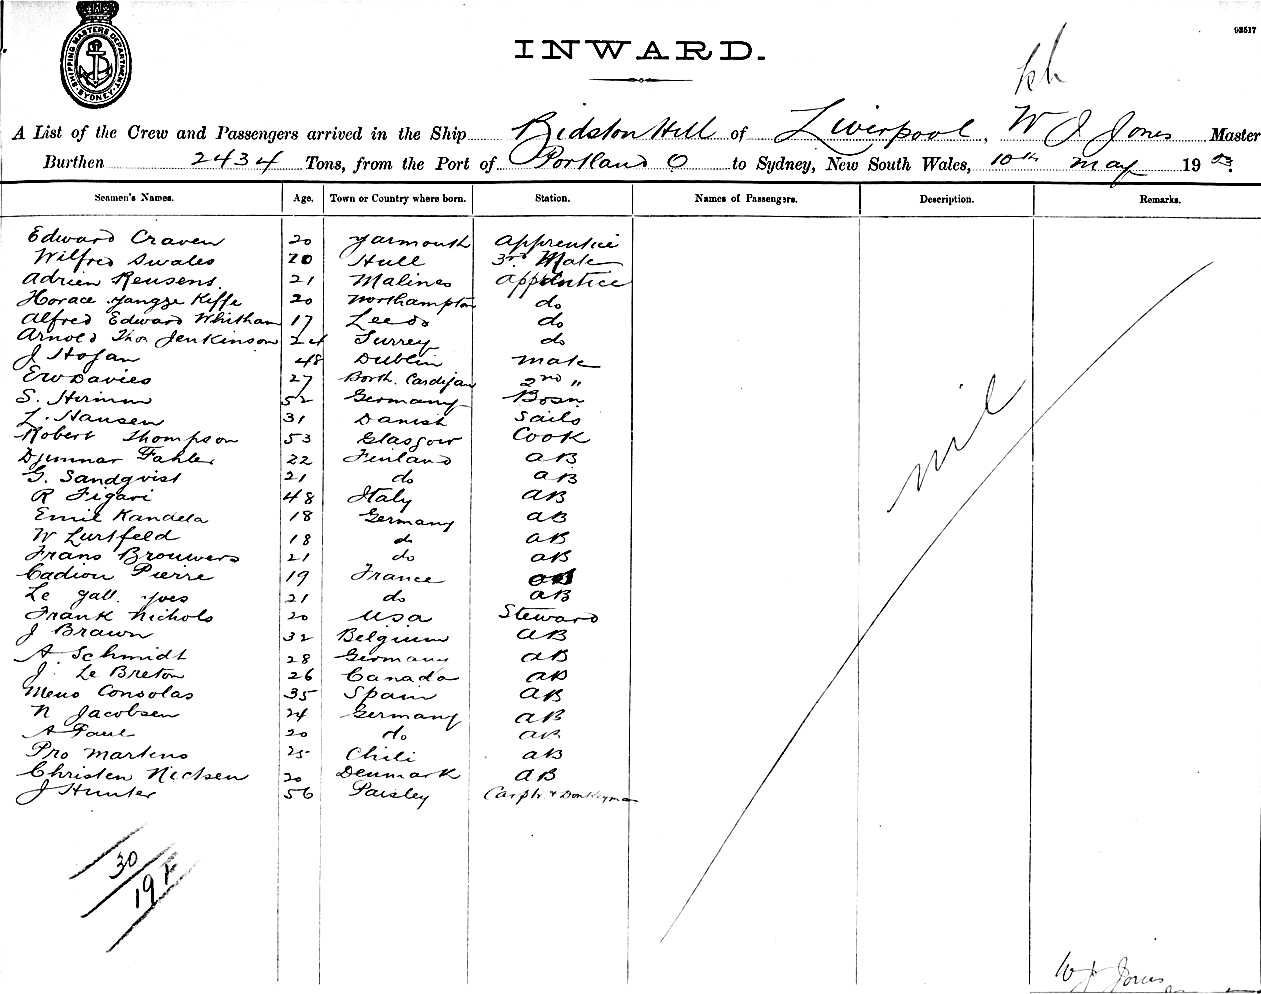 SHIPPING MASTERS DEPARTMENT
SYDNEY
93517
INWARD.
A List of the Crew and Passengers arrived in the Ship Bidston Hill of Liverpool, W J Jones Master
Burthen 2434 Tons, from the Port of Portland O to Sydney, New South Wales, 10th May 1903
Seamen's Names. Age. Town or Country where born. Station. Names of Passengers. Description. Remarks.
Edward Craven 20 Yarmouth Apprentice
Wilfred Swales 20 Hull 3rd Mate
Adrien Reusens. 21 Malines Apprentice
Horace Yangze Kiffe 20 Northampton do
Alfred Edward Whitham 17 Leeds do
Arnold Thos Jenkinson 24 Surrey do
J Hogan 48 Dublin Mate
EW Davies 27 Borth. Cardigan 2nd "
S. Hirman 52 Germany Bosn
L. Hansen 31 Danish Sails
Robert Thompson 53 Glasgow Cook
Fahler 22 Finland AB
G. Sandqvist 21 do AB
R Figari 48 Italy AB
Emil Kandela 18 Germany AB
W Lursfeld 18 do AB
Frans Brouwers 21 do AB
Cadiou Pierre 19 France AB
Le Gall Yves 21 do AB
Frank Nichols 20 USA Steward
J Brawn 32 Belgium AB
A. Schmidt 28 Germany AB
J. Le Breton 26 Canada AB
Meno Consolas 35 Spain AB
N Jacobsen 24 Germany AB
A Paul 20 do AB
Pro Martens 25 Chili AB
Christen Nielsen 20 Denmark AB
J Hunter 56 Paisley Carptr & Donkeyman
nil
30
19 F
W J Jones